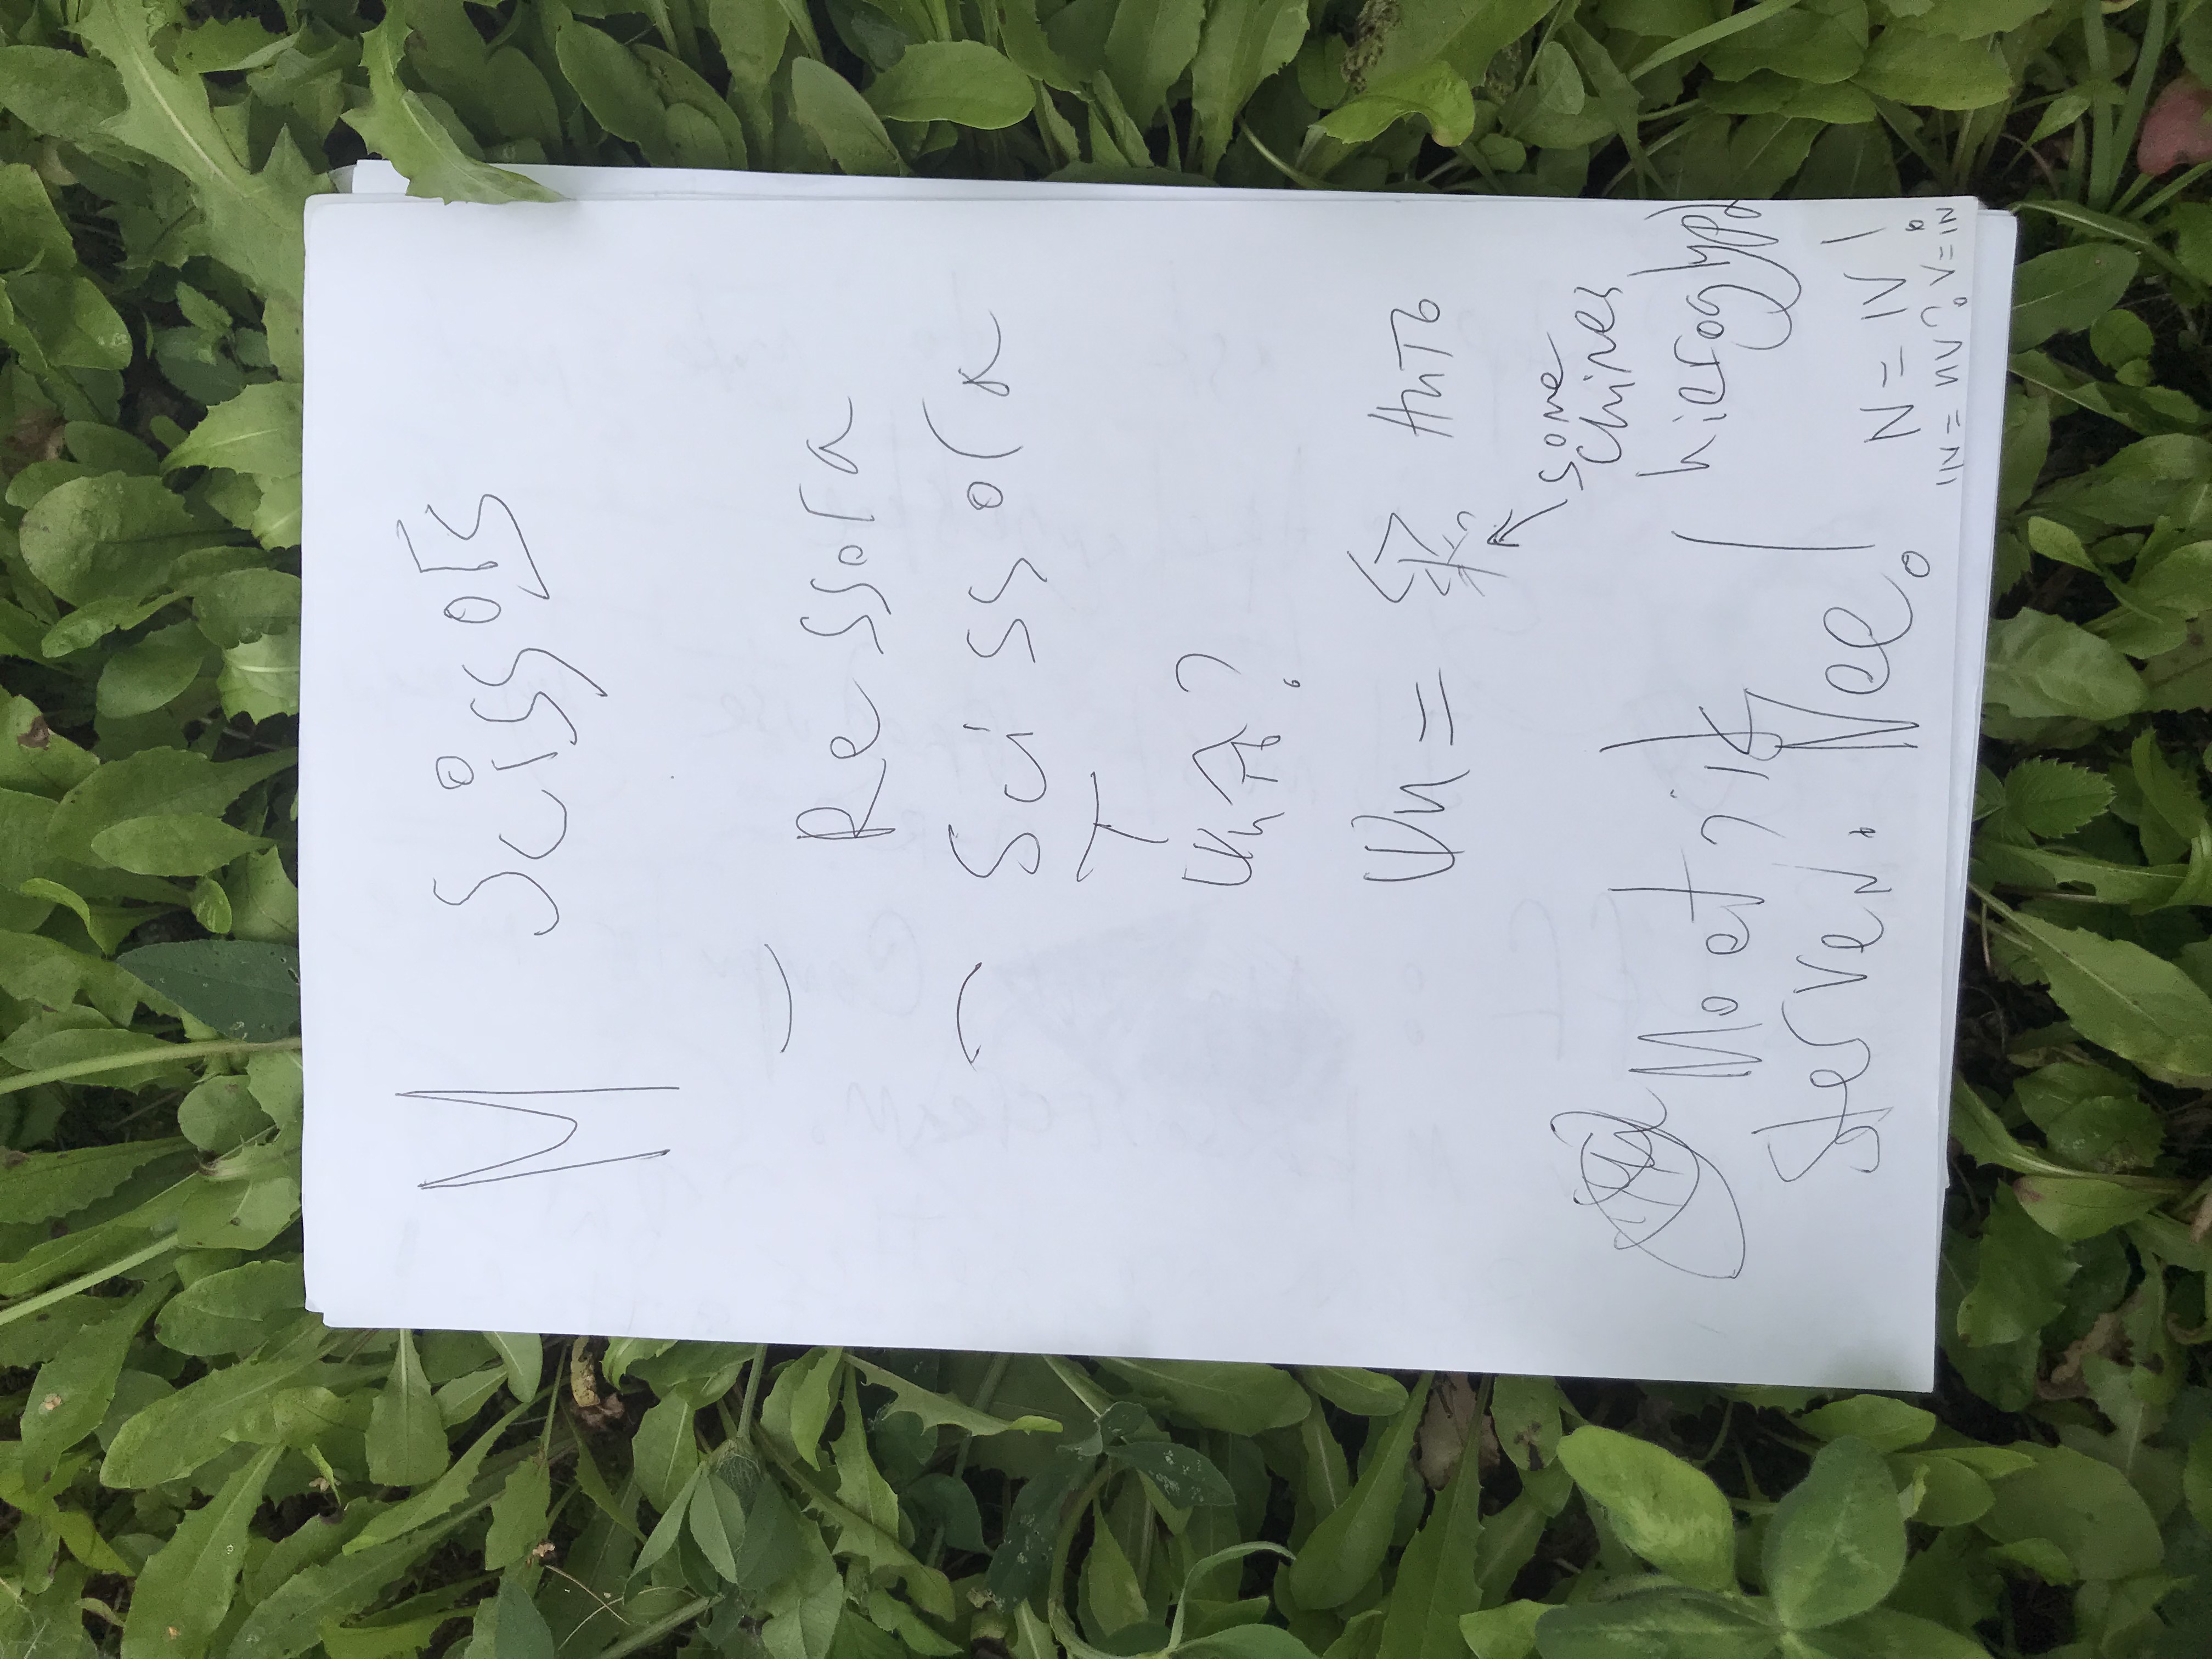 M Scissors
Ressora
Scissora
T
Ψη
Ψи = Анть
some
chines
hieroglyph
Moet, ik
sterven. Nee!
N = IV!
IIV = nV? V = iN